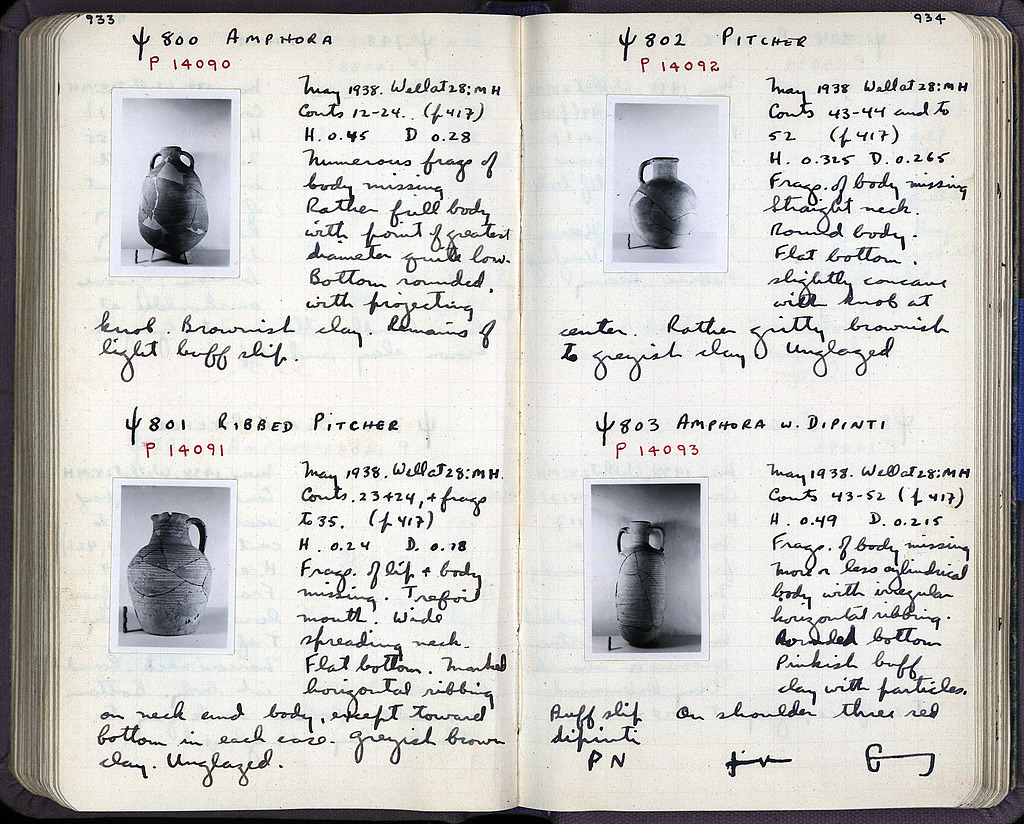 933
ψ 800 AMPHORA
P 14090
May 1938. Well at 28:MH
Conts 12-24. (p 417)
H. 0.45 D 0.28
Numerous frags of
body missing
Rather full body
with point of greatest
diameter quite low.
Bottom rounded,
with projecting
knob. Brownish clay. Remains of
light buff slip.
ψ 801 RIBBED PITCHER
P 14091
May 1938. Well at 28:MH
Conts. 23+24, + frags
to 35. (p 417)
H. 0.24 D. 0.18
Frags. of lip + body
missing. Trefoil
mouth. Wide
spreading neck.
Flat bottom. Marked
horizontal ribbing
on neck and body, except toward
bottom in each case. Greyish brown
clay. Unglazed.
934
ψ 802 PITCHER
P 14092
May 1938 Well at 28:MH
Conts 43-44 and to
52 (p 417)
H. 0.325 D. 0.265
Frags. of body missing
Straight neck.
Round body.
Flat bottom,
slightly concave
with knob at
center. Rather gritty brownish
to greyish clay Unglazed
ψ 803 AMPHORA W. DIPINTI
P 14093
May 1938. Well at 28:MH
Conts 43-52 (p 417)
H. 0.49 D. 0.215
Frags. of body missing
More or less cylindrical
body with irregular
horizontal ribbing.
Rounded bottom
Pinkish buff
clay with particles.
Buff slip On shoulder three red
dipinti
P N